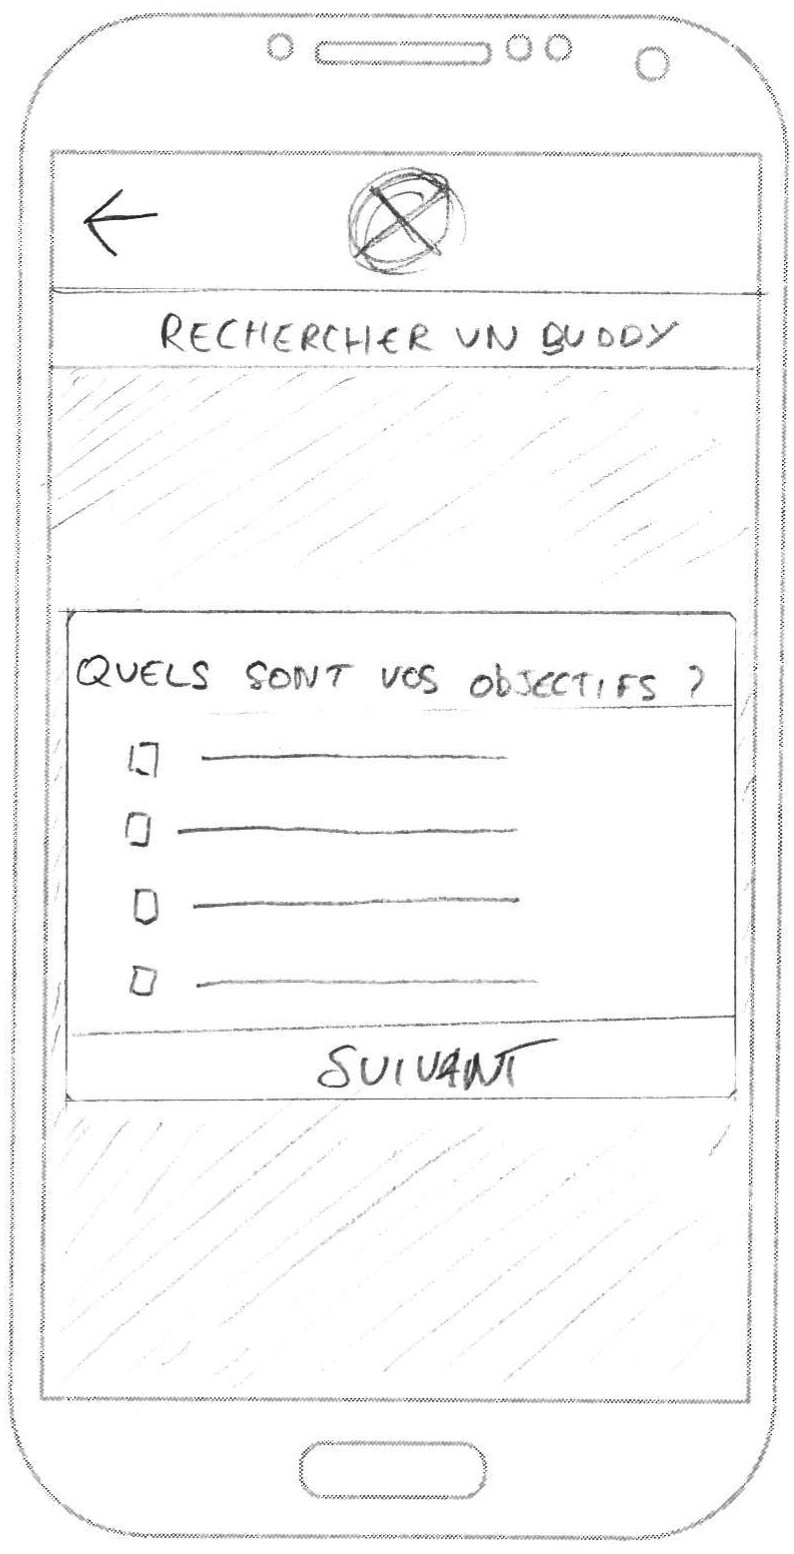 RECHERCHER UN BUDDY
QUELS SONT VOS ObJECTIFS ?
SUIVANT